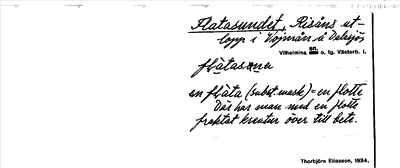 Flatasundet, Risåns ut-
lopp i Vojmån å Dalsjö
Vilhelmina sn. o. tg. Västerb. l.
flàtasune
en flàta (subst. mask) = en flotte
Där har man med en flotte
fraktat kreatur över till bete.
Thorbjörn Eliasson, 1934.